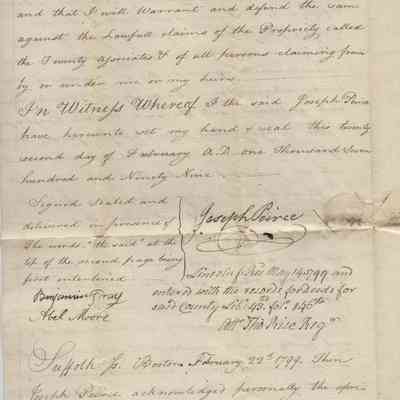 and that I will Warrant and defend the same
against the Lawfull claims of the Propriety called
the Twenty Associates & of all persons claiming from
by or under me or my heirs.
In Witness Whereof I the said Joseph Peirce
have hereunto set my hand & seal this twenty
second day of February A.D. one Thousand Seven
hundred and Ninety Nine
Signed Sealed and
delivered in presence of
The words "the said" at the
top of the second page being
first interlined
Benjamin Gray
Abel Moore
Joseph Peirce
Lincoln Ss. Recd May 14. 1799 and
entered with the records for deeds for
said County Lib. 43d. fol. 145th
Attr Thos Rice Regr
Suffolk Ss. Boston February 22d 1799. Then
Joseph Peirce acknowledged personally the afore